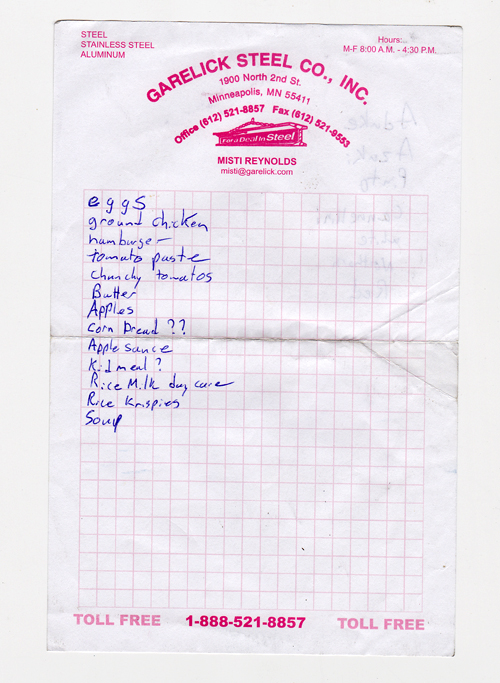 STEEL
STAINLESS STEEL
ALUMINUM
Hours:..
M-F 8:00 A.M. - 4:30 P.M.
GARELICK STEEL CO., INC.
1900 North 2nd St.
Minneapolis, MN 55411
Office (612) 521-8857 Fax (612) 521-9553
For a Deal in Steel
MISTI REYNOLDS
misti@garelick.com
eggs
ground chicken
hamburger
tomato paste
chunchy tomatos
Butter
Apples
Corn bread ??
Apple sauce
Kid meal ?
Rice Milk day care
Rice Krispies
Soup
TOLL FREE 1-888-521-8857 TOLL FREE